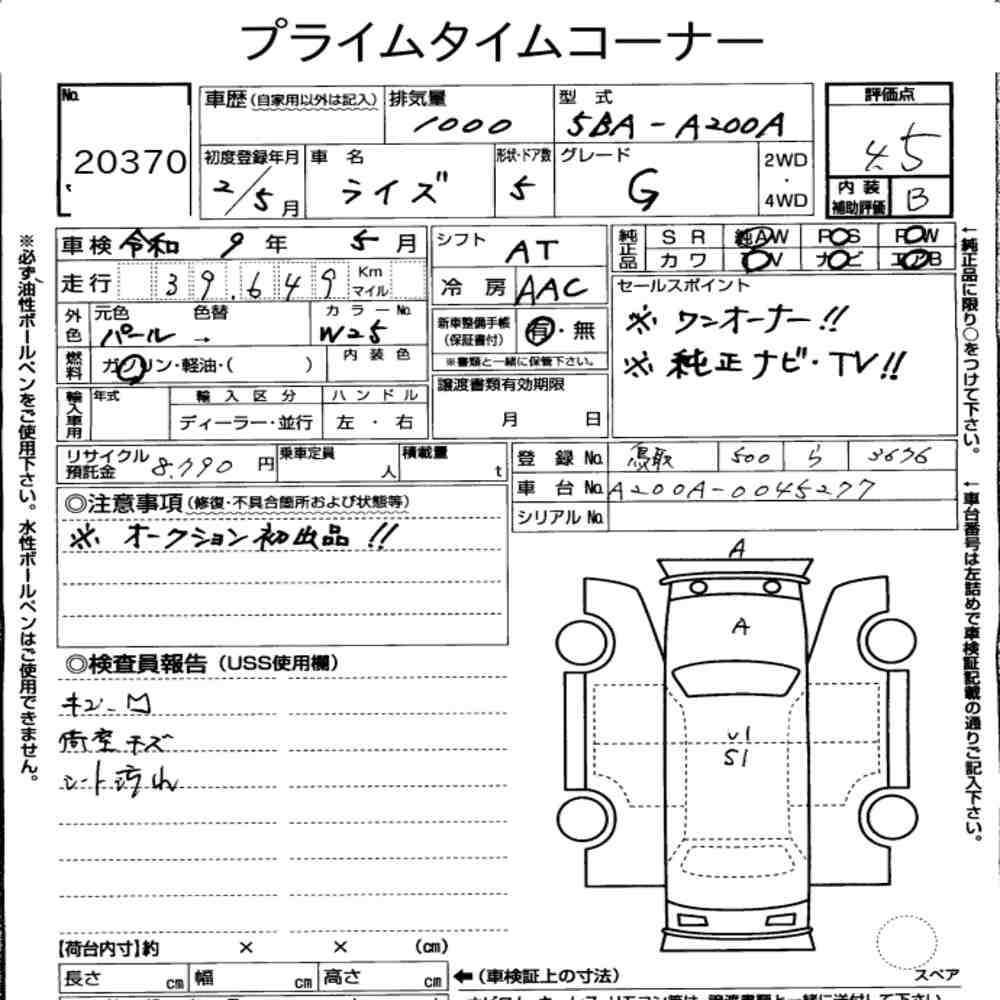 プライムタイムコーナー
No. 20370
車歴(自家用以外は記入)
排気量 1000
型式 5BA-A200A
評価点 4.5
内装補助評価 B
初度登録年月 2/5月
車名 ライズ
形状・ドア数 5
グレード G
2WD・4WD
車検 令和 9年 5月
シフト AT
純正品 SR 純AW P○S P○W
カワ TV ナビ エアB
走行 39,649 Km マイル
冷房 AAC
外色 元色 パール → 色替
カラーNo. W25
新車整備手帳(保証書付) 有・無
※書類と一緒に保管下さい。
セールスポイント
※ ワンオーナー!!
※ 純正ナビ・TV!!
燃料 ガソリン・軽油・( )
内装色
譲渡書類有効期限
月 日
輸入車用 年式 輸入区分 ハンドル
ディーラー・並行 左・右
リサイクル預託金 8,790円
乗車定員 人
積載量 t
登録No. 鳥取 500 ら 3676
車台No. A200A-0045277
シリアルNo.
◎注意事項(修復・不具合箇所および状態等)
※ オークション初出品!!
◎検査員報告(USS使用欄)
キズ凹
荷室キズ
シート汚れ
A
A
U1
S1
【荷台内寸】約 × × (cm)
長さ cm 幅 cm 高さ cm
←(車検証上の寸法)
スペア
※必ず油性ボールペンをご使用下さい。水性ボールペンはご使用できません。
←純正品に限り○をつけて下さい。
←車台番号は左詰めで車検証記載の通りご記入下さい。